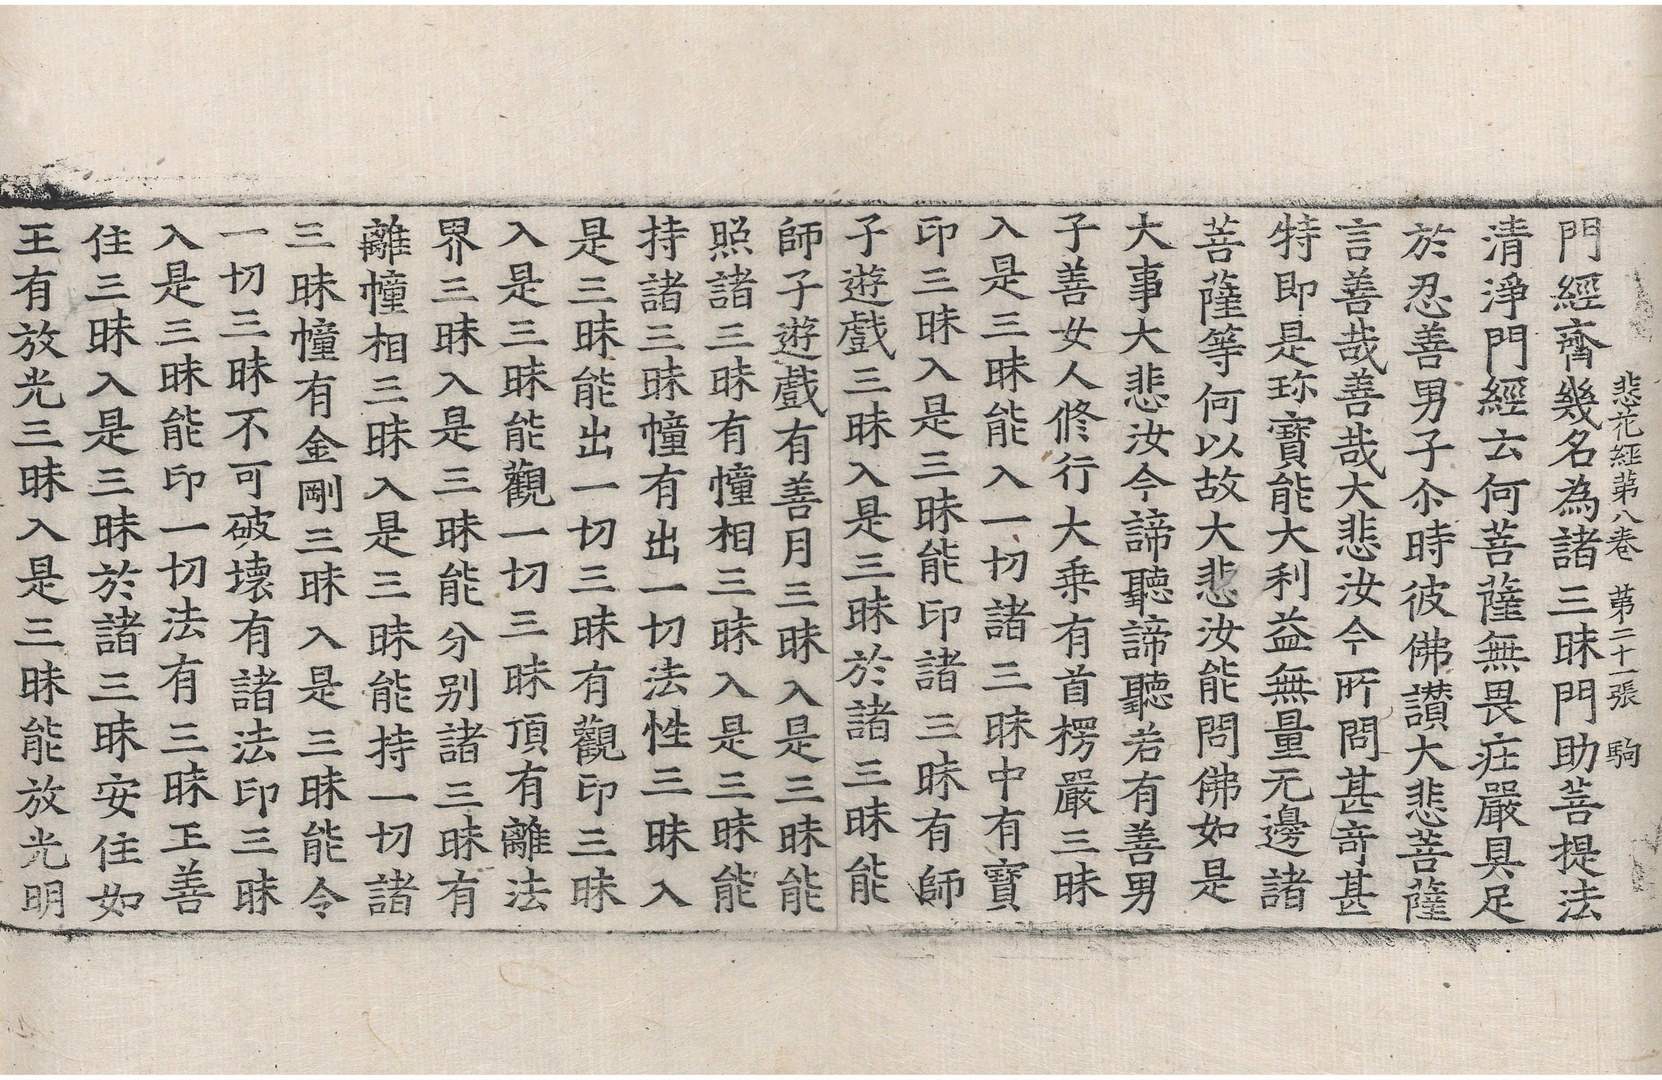 悲花經第八卷 第二十一張 駒
門經齊幾名為諸三昧門助菩提法
清淨門經云何菩薩無畏庄嚴具足
於忍善男子尒時彼佛讃大悲菩薩
言善哉善哉大悲汝今所問甚奇甚
特即是珎寶能大利益無量无邊諸
菩薩等何以故大悲汝能問佛如是
大事大悲汝今諦聽諦聽若有善男
子善女人修行大乗有首楞嚴三昧
入是三昧能入一切諸三昧中有寶
印三昧入是三昧能印諸三昧有師
子遊戲三昧入是三昧於諸三昧能
師子遊戲有善月三昧入是三昧能
照諸三昧有幢相三昧入是三昧能
持諸三昧幢有出一切法性三昧入
是三昧能出一切三昧有觀印三昧
入是三昧能觀一切三昧頂有離法
界三昧入是三昧能分别諸三昧有
離幢相三昧入是三昧能持一切諸
三昧幢有金剛三昧入是三昧能令
一切三昧不可破壊有諸法印三昧
入是三昧能印一切法有三昧王善
住三昧入是三昧於諸三昧安住如
王有放光三昧入是三昧能放光明